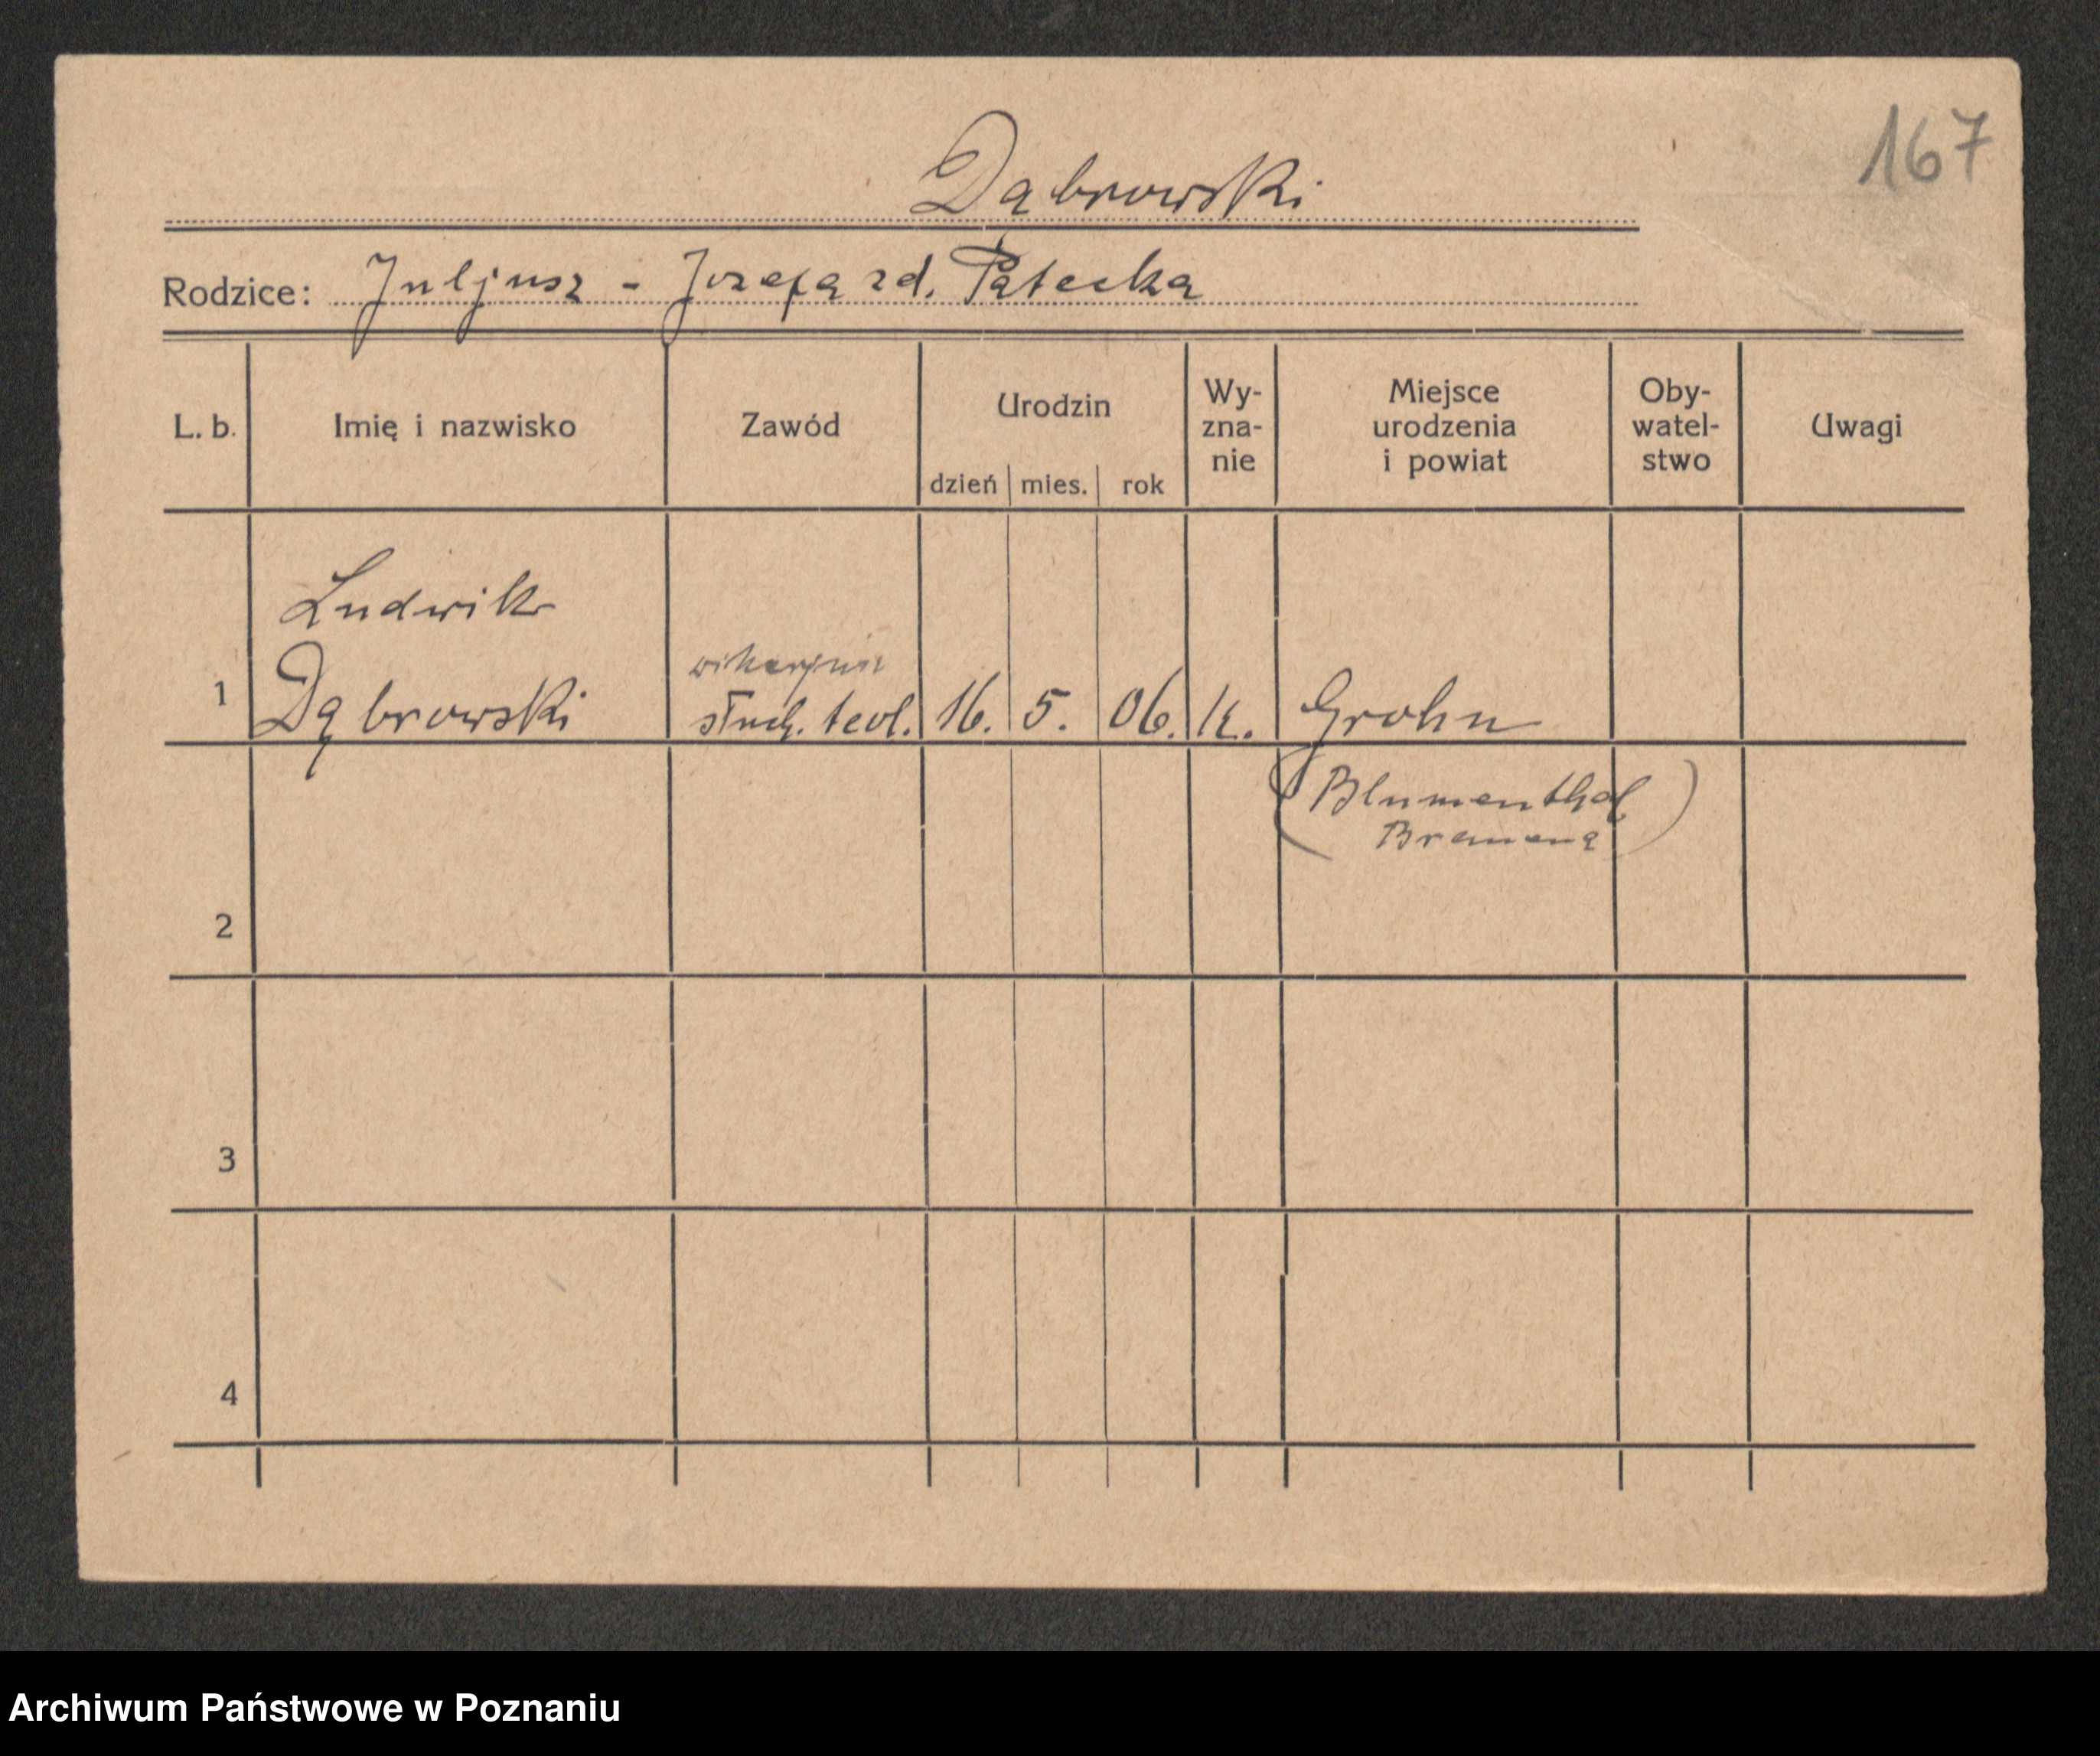 167
Dąbrowski
Rodzice: Juljusz - Józefa zd. Patecka
L. b. Imię i nazwisko Zawód Urodzin dzień mies. rok Wy-zna-nie Miejsce urodzenia i powiat Oby-watel-stwo Uwagi
Ludwik
wikarjusz
1 Dąbrowski słuch. teol. 16. 5. 06. k. Grohn
(Blumenthal
Bremena)
2
3
4
Archiwum Państwowe w Poznaniu